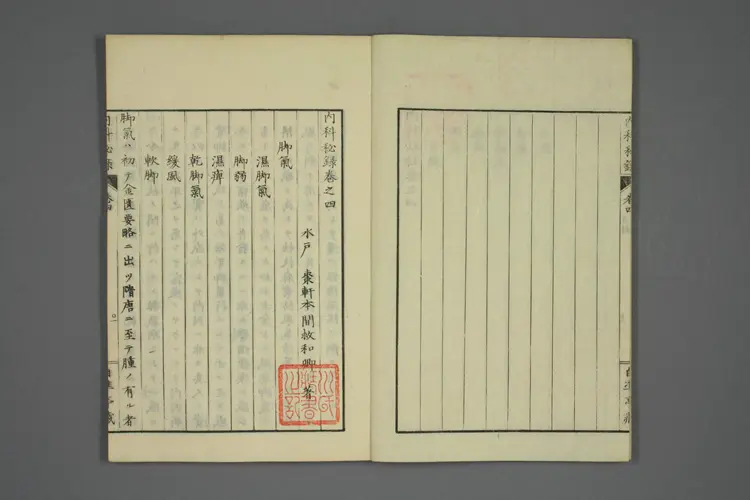 内科秘録巻之四
水戸 棗軒本間救和卿 著
脚氣
濕脚氣
脚弱
濕痺
乾脚氣
緩風
軟脚
脚氣ハ初テ金匱要略ニ出ツ隋唐ニ至テ腫ノ有ル者
内科秘録
巻四